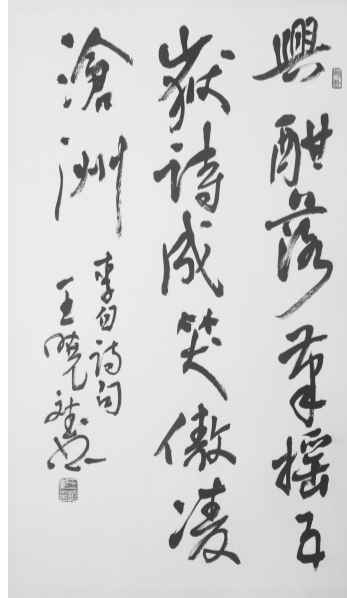 興酣落筆摇五
嶽詩成笑傲凌
滄洲
李白詩句
王曉